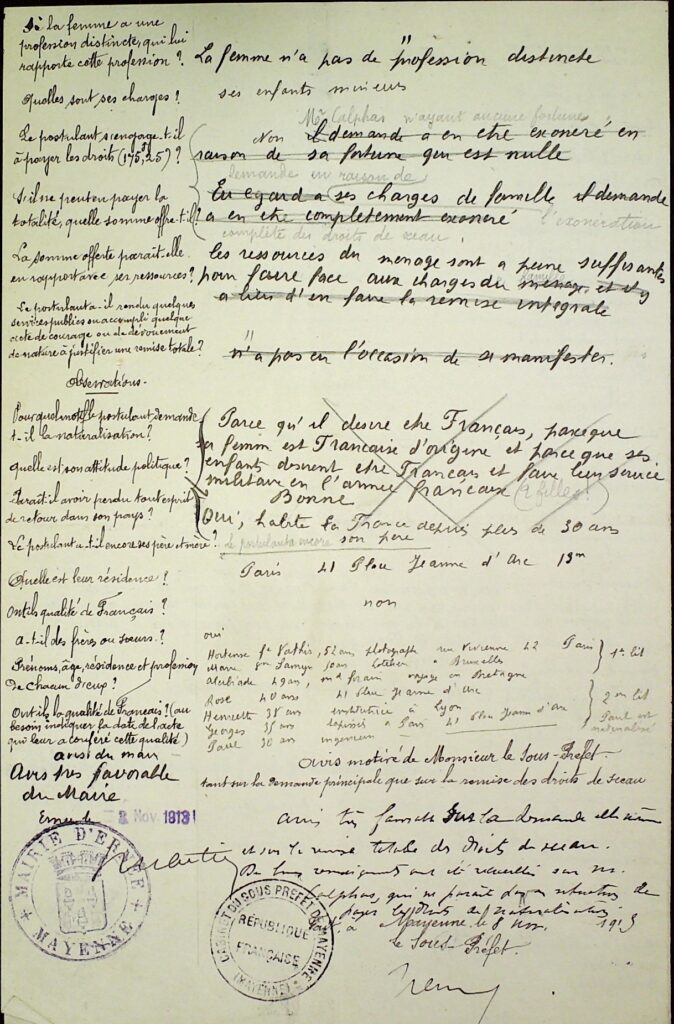 Si la femme a une
profession distincte, qui lui
rapporte cette profession ?
La femme n'a pas de profession distincte
Quelles sont ses charges ?
ses enfants mineurs
Mr Calphas n'ayant aucune fortune
Le postulant s'engage-t-il
à payer les droits (175f,25) ?
Non Il demande à en etre exonéré en
raison de sa fortune qui est nulle
demande en raison de
S'il ne peut en payer la
totalité, quelle somme offre-t-il ?
Eu egard a ses charges de famille il demande
a en etre completement exonéré l'exonération
complète des droits de sceau
La somme offerte parait-elle
en rapport avec ses ressources ?
les ressources du menage sont a peine suffisantes
pour faire face aux charges du menage, et il y
a lieu d'en faire la remise integrale
Le postulant a-t-il rendu quelques
services publics ou accompli quelque
acte de courage ou de dévouement
de nature à justifier une remise totale ?
n'a pas eu l'occasion de se manifester.
Observations.
Pour quel motif le postulant demande
t-il la naturalisation ?
Parce qu'il desire etre Français, parceque
sa femme est Française d'origine et parce que ses
enfants desirent etre Francais et faire leur service
militaire en l'armée française (2 filles!)
Quelle est son attitude politique ?
Bonne
Parait-il avoir perdu tout esprit
de retour dans son pays ?
Oui, habite la France depuis plus de 30 ans
Le postulant a-t-il encore ses père et mère ?
le postulant a encore son père
Quelle est leur résidence ?
Paris 41 Place Jeanne d'Arc 13me
Ont-ils qualité de Français ?
non
A-t-il des frères ou soeurs ?
oui
Prénoms, âge, résidence et profession
de chacun d'eux ?
Hortense fe Vathis, 52 ans photograph rue Vivienne 42 Paris
Marie à Bruxelles
49 ans, md forain voyage en Bretagne
1er lit
Rose 40 ans 41 place Jeanne d'Arc
Henriette 38 ans institutrice à Lyon
Georges 35 ans à Paris 41 place Jeanne d'Arc
Paul 30 ans ingenieur
2me lit
Paul est
naturalisé
Ont-ils la qualité de Français ? (au
besoin indiquer la date de l'acte
qui leur a conféré cette qualité)
avis du maire
Avis très favorable
du Maire
Ernée le 3 Nov. 1913
MAIRIE D'ERNÉE
MAYENNE
Avis motivé de Monsieur le Sous-Préfet
tant sur la demande principale que sur la remise des droits de sceau
avis très favorable sur la demande elle même
et sur la remise totale des droits de sceau.
De bons renseignements ont été recueillis sur M.
Calphas, qui ne parait en situation de
payer les droits de naturalisation
à Mayenne le 8 Nov. 1913
le Sous-Préfet.
CABINET DU SOUS PREFET DE MAYENNE
RÉPUBLIQUE
FRANÇAISE
(MAYENNE)